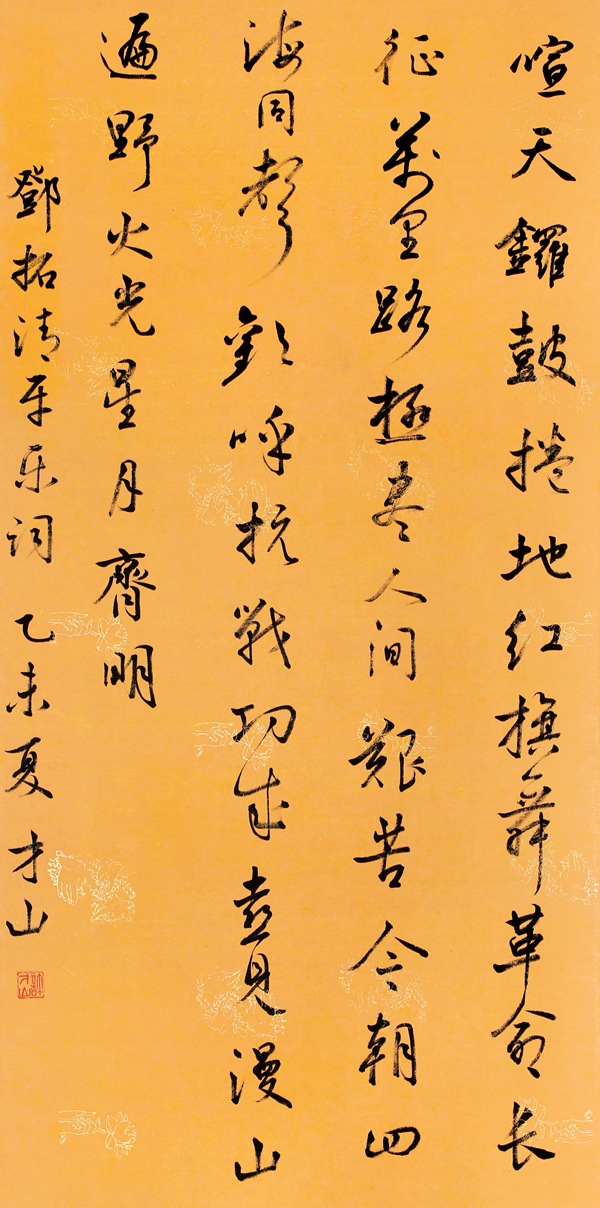 喧天鑼鼓捲地红旗舞革命长
征萬里路極尽人间艱苦今朝四
海同聲歡呼抗戰功成喜见漫山
遍野火光星月齊明
鄧拓清平乐词乙未夏才山
許才山